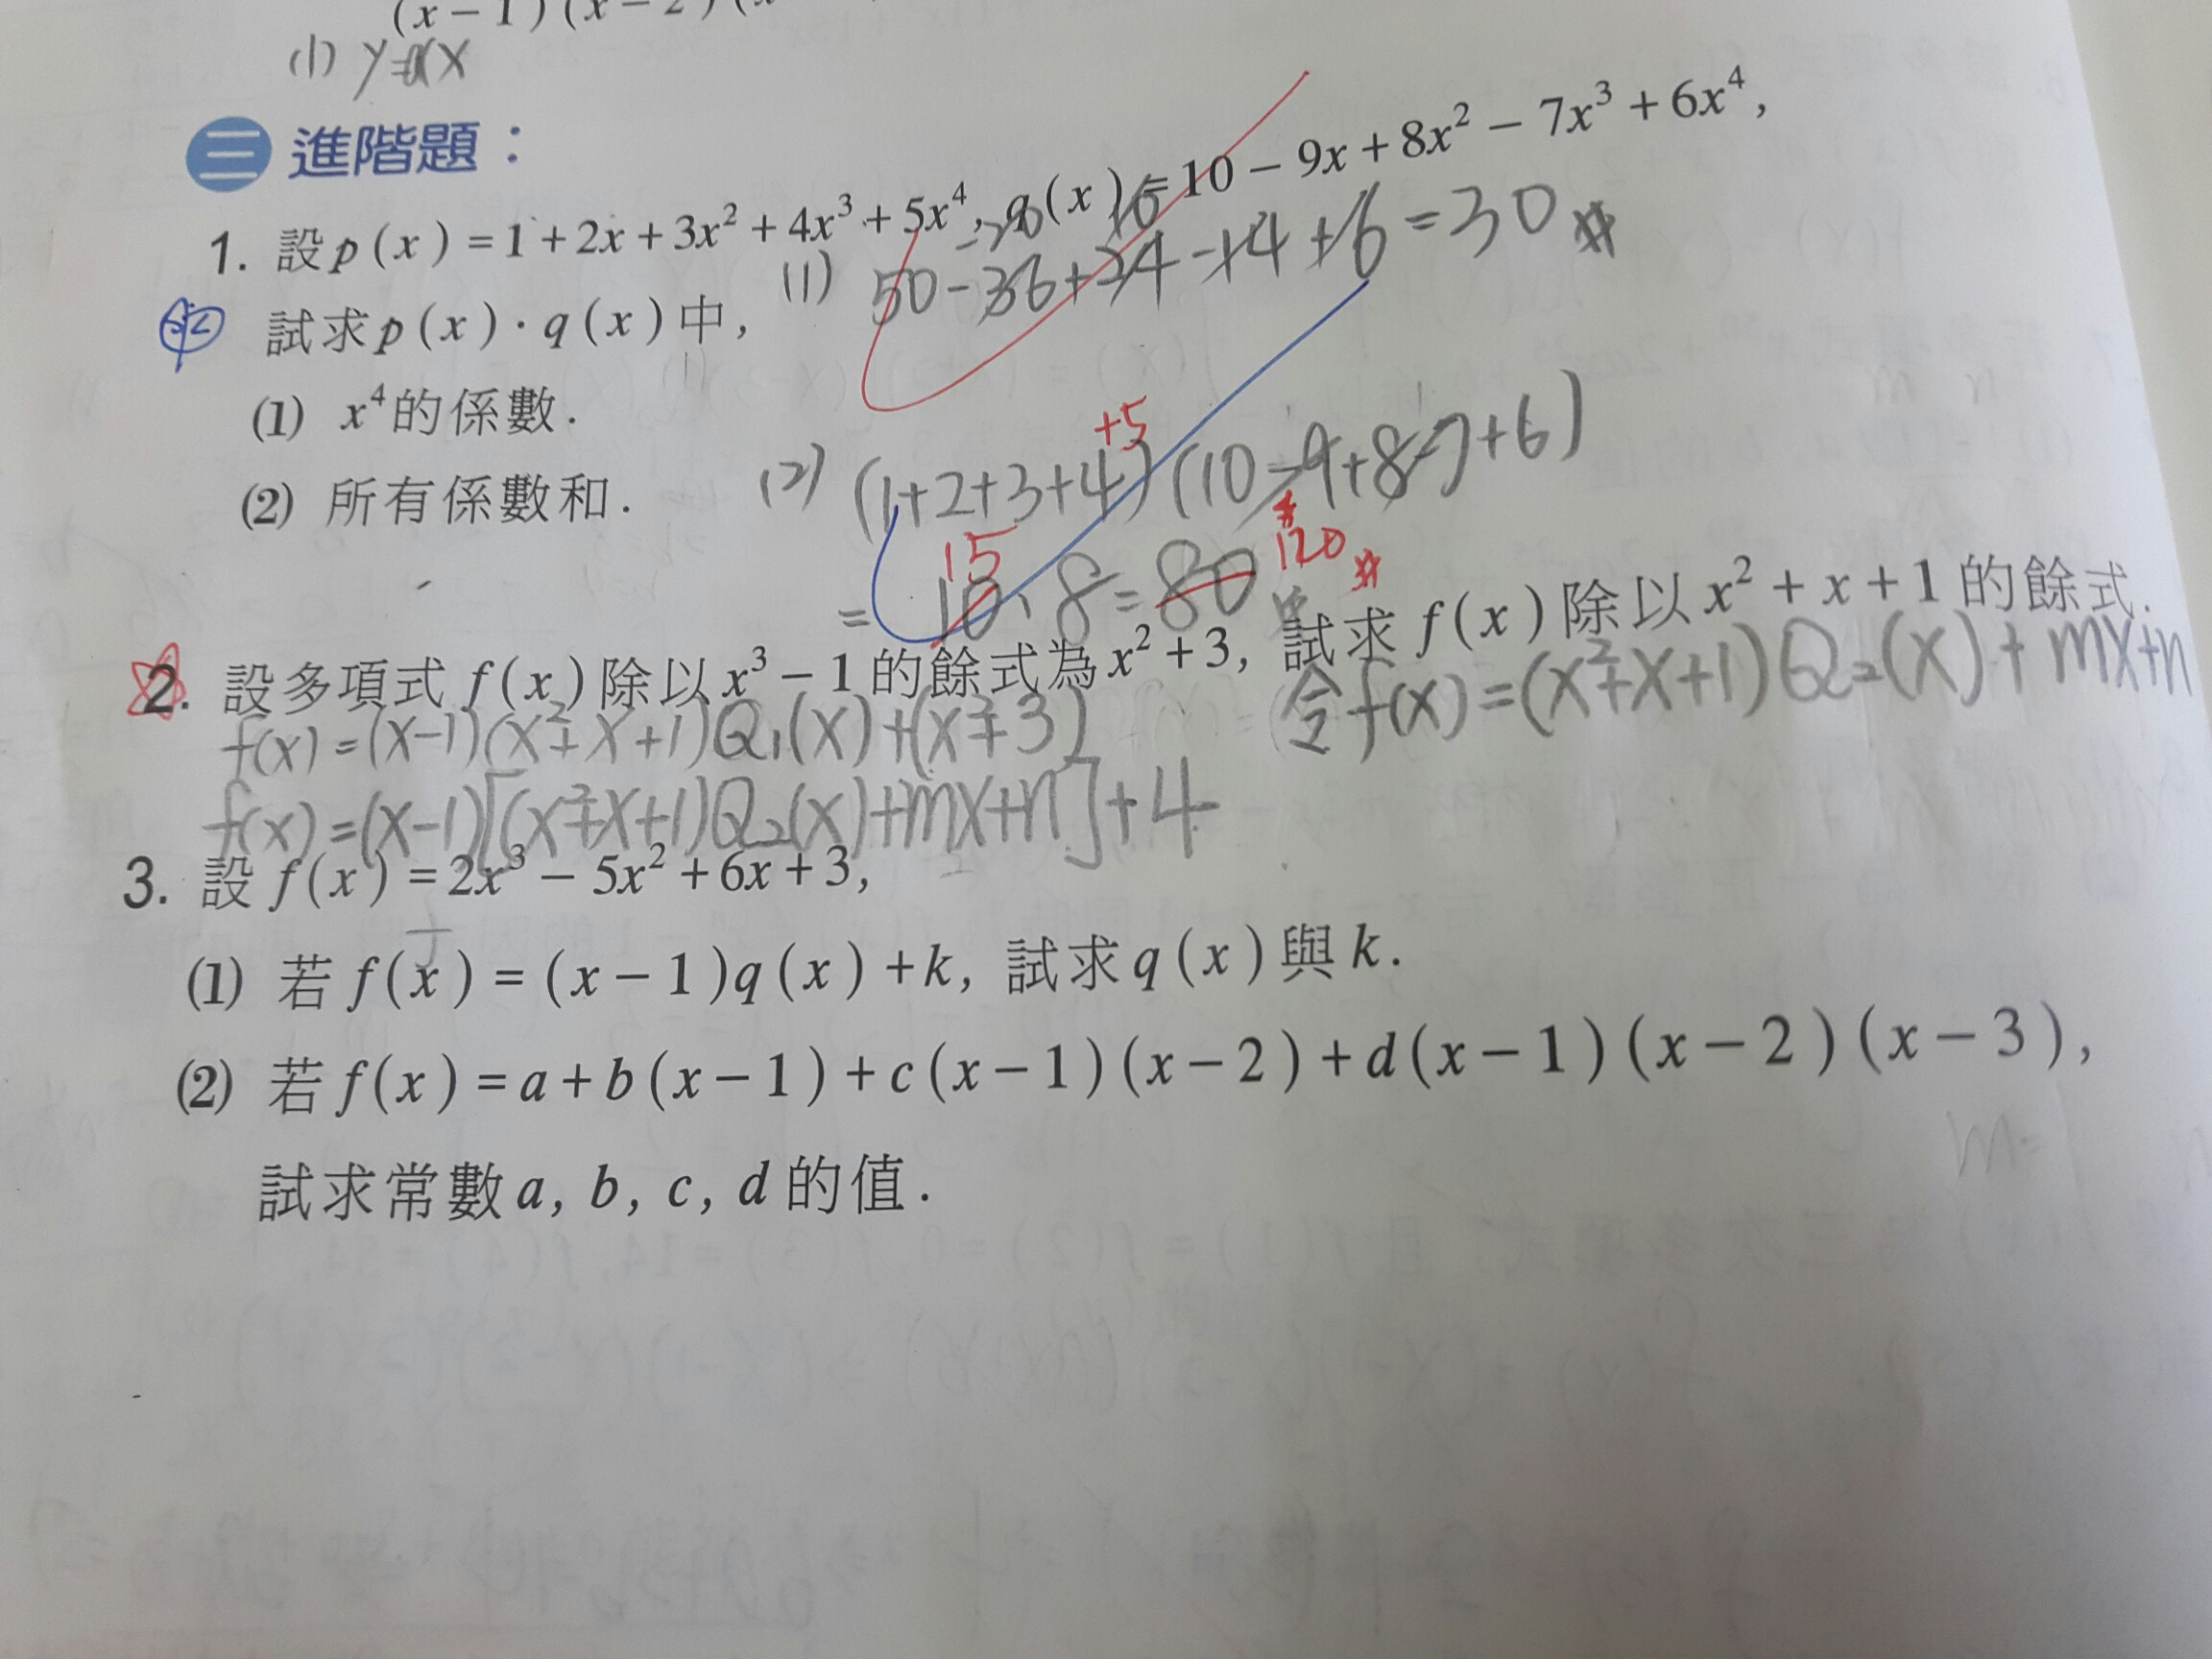 (x-1)(x-2)(x
(1) y=a(x
三 進階題：
1. 設p(x)=1+2x+3x²+4x³+5x⁴, q(x)=10-9x+8x²-7x³+6x⁴,
試求p(x)·q(x)中,
(1) 50-36+24-14+6=30#
(1) x⁴的係數.
(2) 所有係數和.
(2) (1+2+3+4+5)(10-9+8-7+6)
=10·8=80
15
120#
2. 設多項式f(x)除以x³-1的餘式為x²+3, 試求f(x)除以x²+x+1的餘式.
f(x)=(x-1)(x²+x+1)Q₁(x)+(x²+3)
令f(x)=(x²+x+1)Q₂(x)+mx+n
f(x)=(x-1)[(x²+x+1)Q₂(x)+mx+n]+4
3. 設f(x)=2x³-5x²+6x+3,
(1) 若f(x)=(x-1)q(x)+k, 試求q(x)與k.
(2) 若f(x)=a+b(x-1)+c(x-1)(x-2)+d(x-1)(x-2)(x-3),
試求常數a, b, c, d的值.